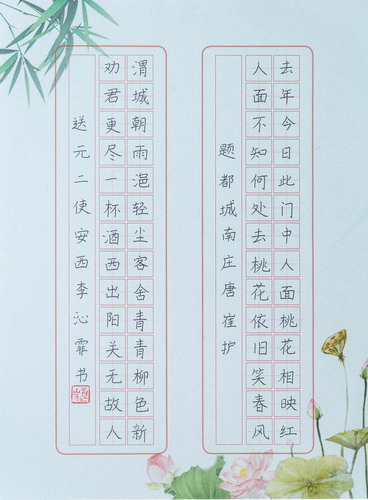 去年今日此门中人面桃花相映红
人面不知何处去桃花依旧笑春风
题都城南庄唐崔护
渭城朝雨浥轻尘客舍青青柳色新
劝君更尽一杯酒西出阳关无故人
送元二使安西李沁霏书